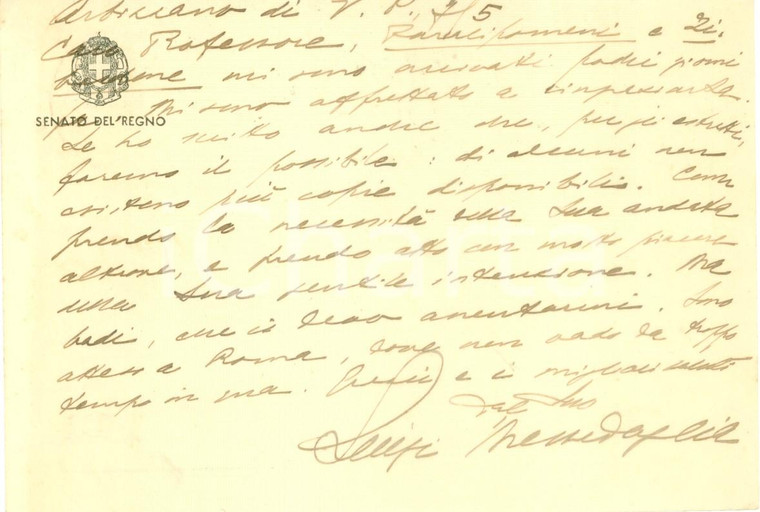 Arbizzano di V. P. 3/5
Caro Professore, Paralipomeni e Zi-
baldone mi sono arrivati pochi giorni
fa. Mi sono affrettato a
SENATO DEL REGNO
Le ho scritto anche che, per gli estratti,
faremo il possibile: di alcuni non
esistono più copie disponibili. Com
prendo la necessità della Sua andata
altrove, e prendo atto con molto piacere
della Sua gentile intenzione. Ma
badi, che io devo assentarmi. Sono
atteso a Roma, dove non vado da troppo
tempo in qua. Grazie e i migliori saluti
dal Suo
Luigi Messedaglia